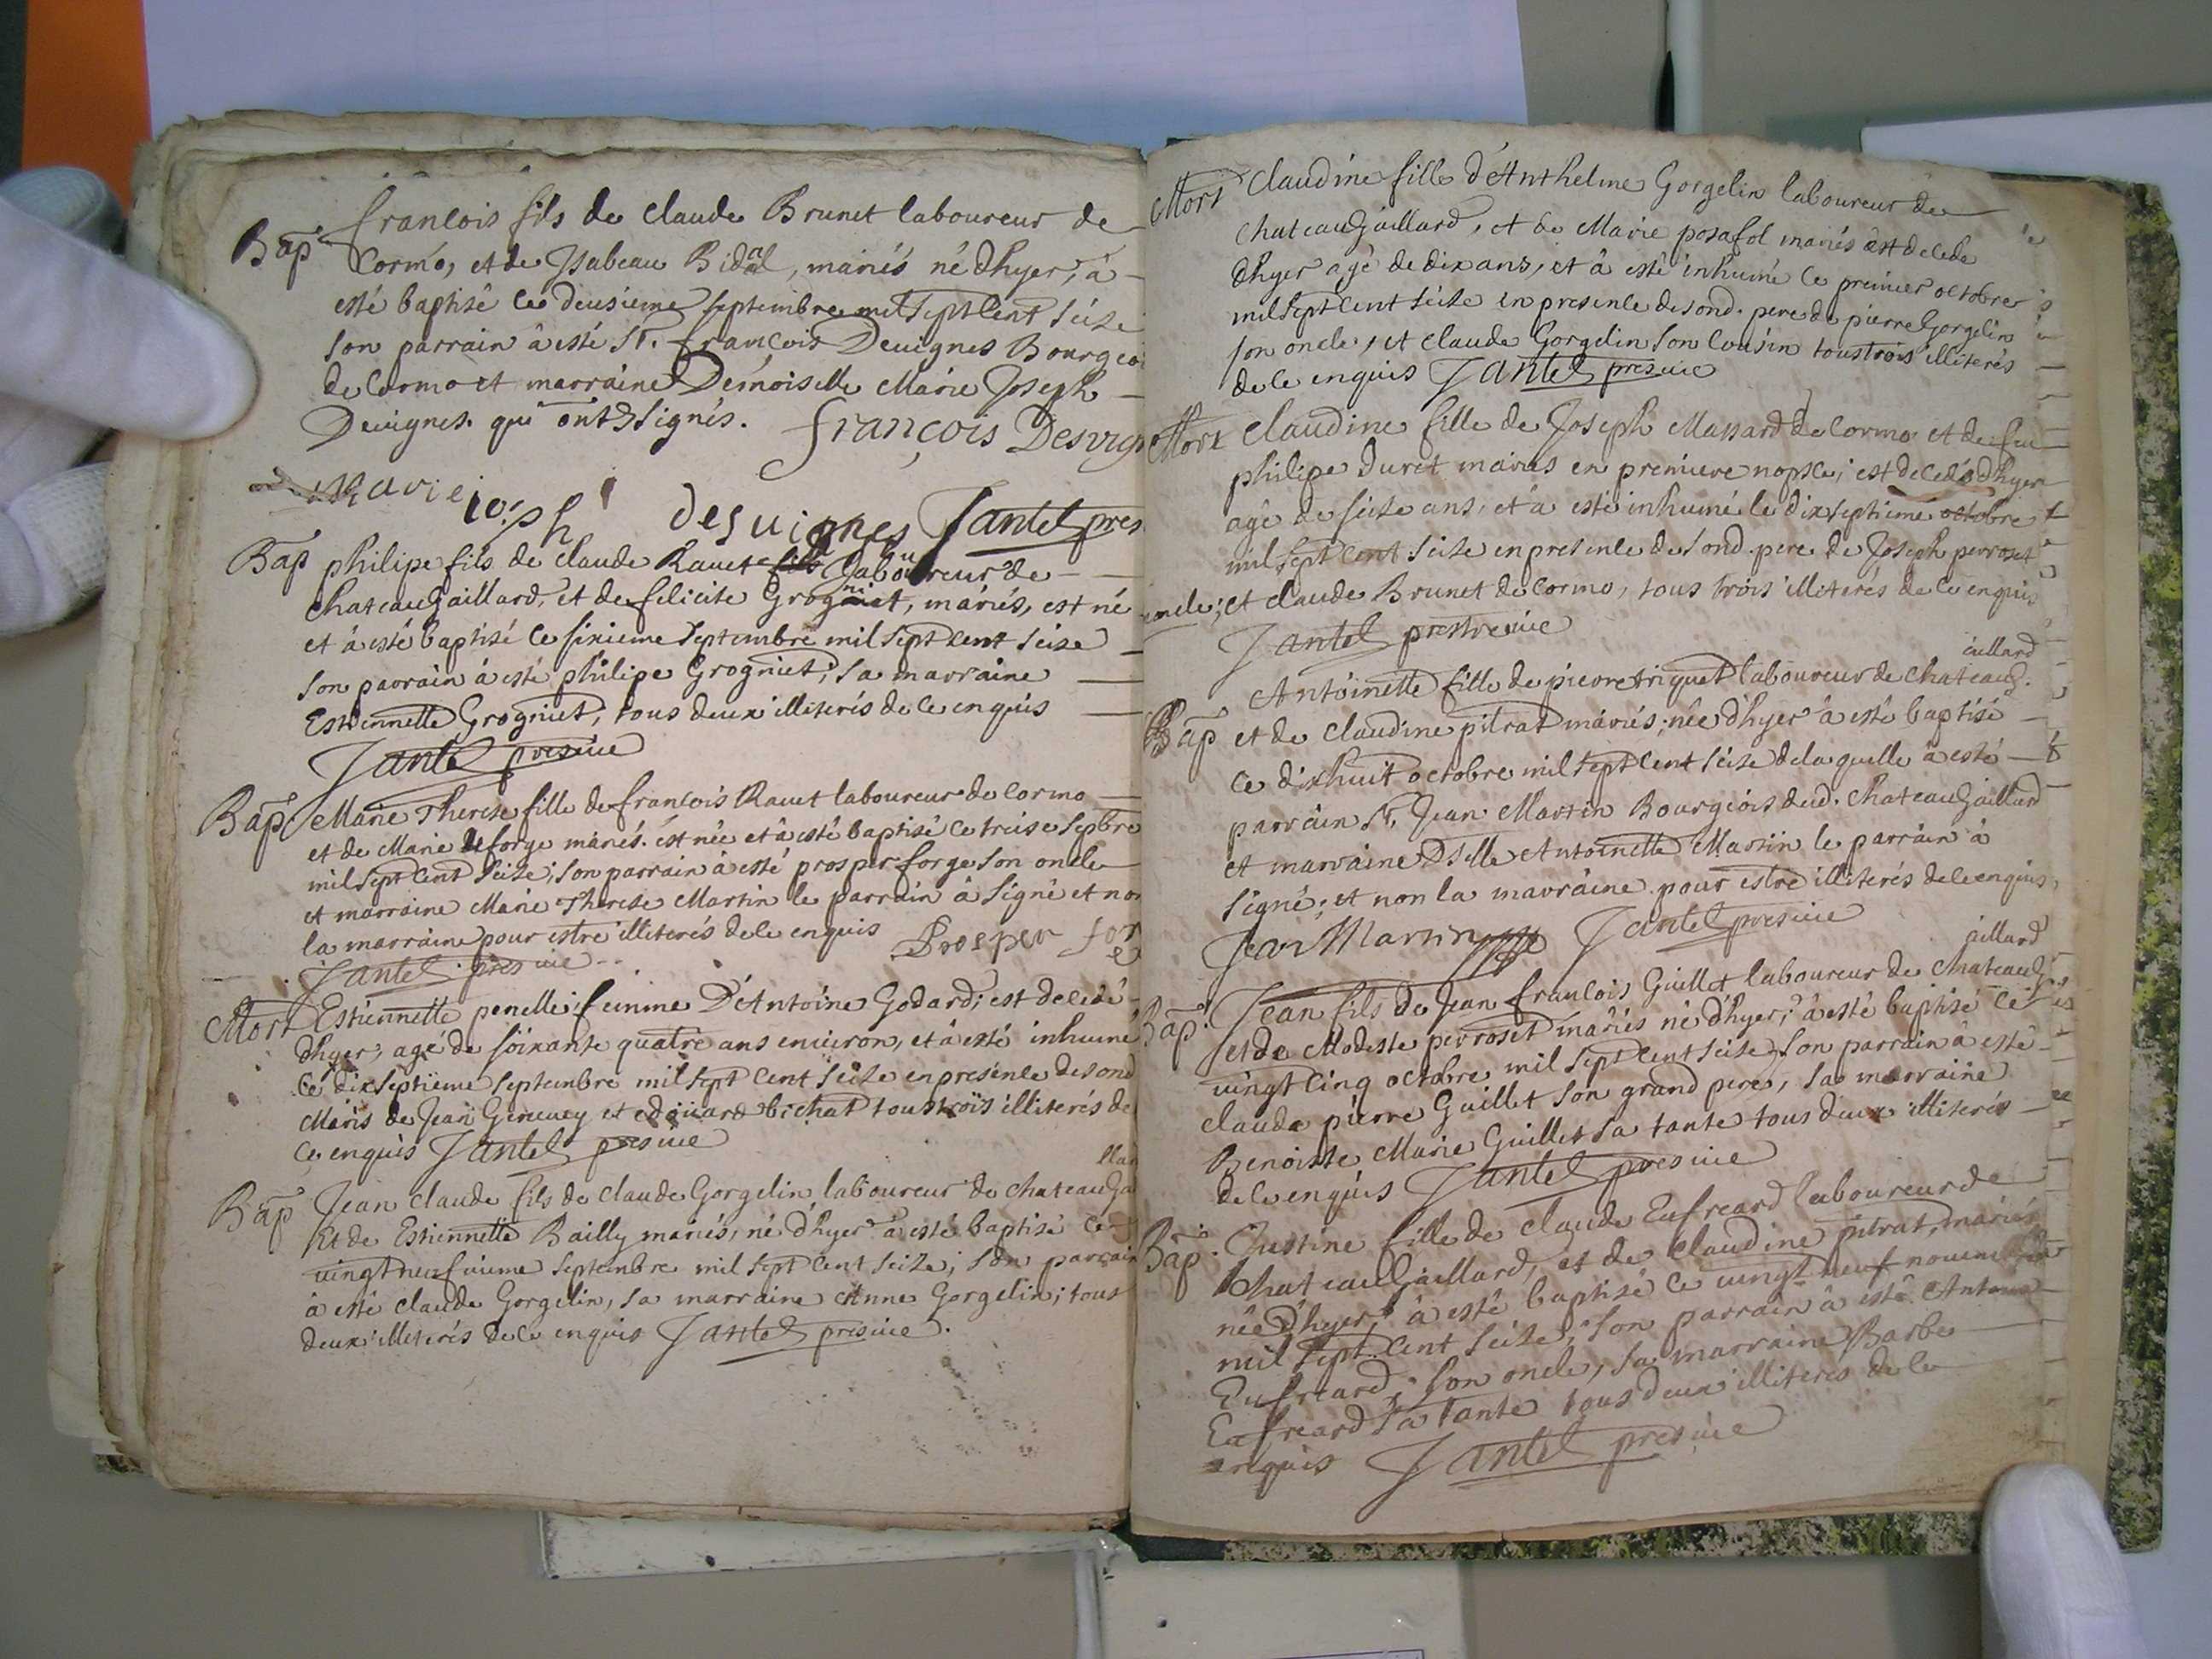 Bap francois fils de claude Brunet laboureur de
Cormo, et de Jsabeau Bidal, mariés né dhyer, à
esté baptisé ce deusieme septembre mil sept cent seize
son parrain à esté Sr. francois Deuignes Bourgeoi
de Cormo et marraine Demoiselle Marie Joseph
Deuignes. qui ont signés. françois Desvig
marie ioseph desuignes Jantet pres
Bap philipe fils de claude Rauet laboureur de
chateaugaillard, et de felicite Grogniet, mariés, est né
et à esté baptisé ce sixieme septembre mil sept cent seize
son parrain à esté philipe Grogniet, sa marraine
Estiennette Grogniet, tous deux illiterés de ce enquis
Jantet presuie
Bap. Marie Therese fille de francois Rauet laboureur de Cormo
et de Marie deforge mariés. est née et à esté baptisé ce treise Septbre
mil sept cent seize; son parrain à esté prosper forge son oncle
et marraine Marie Therese Martin le parrain à signé et non
la marraine pour estre illiterés de ce enquis Prosper for
Jantet presuie
Mort Estiennette penelle femme D'Antoine Godard; est decedé
dhyer, agé de soixante quatre ans enuiron, et à esté inhumé
ce dixseptieme septembre mil sept cent seize en presence de sond
Maris de Jean Gereuey et edouard bichat tous trois illiterés de
ce enquis Jantet presuie
llar
Bap Jean claude fils de claude Gorgelin laboureur de chateauga
Et de Estiennette Bailly mariés, né d'hyer à esté baptisé ce
uingt neufuieme septembre mil sept cent seize; son parrain
à esté claude Gorgelin, sa marraine Anne Gorgelin; tous
deux illiterés de ce enquis Jantet presuie.
Mort Claudine fille d'Anthelme Gorgelin laboureur de
chateaugaillard, et de Marie posafol mariés est decede
dhyer agé de dix ans, et à esté inhumé ce premier octobre
mil sept cent seize en presence de sond. pere de pierre Gorgelin
son oncle, et claude Gorgelin son cousin tous trois illiterés
de ce enquis Jantet presuie
Mort Claudine fille de Joseph Massard de Cormo et de feu
philipe Duret mariés en premiere nopsce; est decedés dhyer
agé de seize ans, et à esté inhumé le dixseptieme octobre
mil sept cent seize en presence de sond. pere de Joseph perroset
oncle; et claude Brunet de Cormo, tous trois illiterés de ce enquis
Jantet prestreuie
aillard
Antoinette fille de pierre triquet laboureur de chateaug.
Bap et de claudine pitrat mariés; née d'hyer à esté baptisé
ce dixhuit octobre mil sept cent seize de laquelle à esté
parrain Sr. Jean Martin Bourgeois dud. chateaugaillard
et marraine Dselle Antoinette Martin le parrain à
signé; et non la marraine pour estre illiterés de ce enquis,
Jean Martin Jantet presuie
aillard
Bap. Jean fils de Jean francois Guillet laboureur de chateaug
et de Modeste perroset mariés né d'hyer; à esté baptisé ce
uingt cinq octobre mil sept cent seize son parrain à esté
claude pierre Guillet son grand pere, sa marraine
Benoiste Marie Guillet sa tante tous deux illiterés
de ce enquis Jantet presuie
Bap. Justine fille de claude Eufreard laboureur de
chateaugaillard, et de claudine pitrat, mariés
née D'hyer, à esté baptisé ce uingt neuf nouembre
mil sept cent seize; son parrain à esté Antoine
Eufreard; son oncle, sa marraine Barbe
Eufreard sa tante tous deux illiterés de ce
enquis Jantet presuie